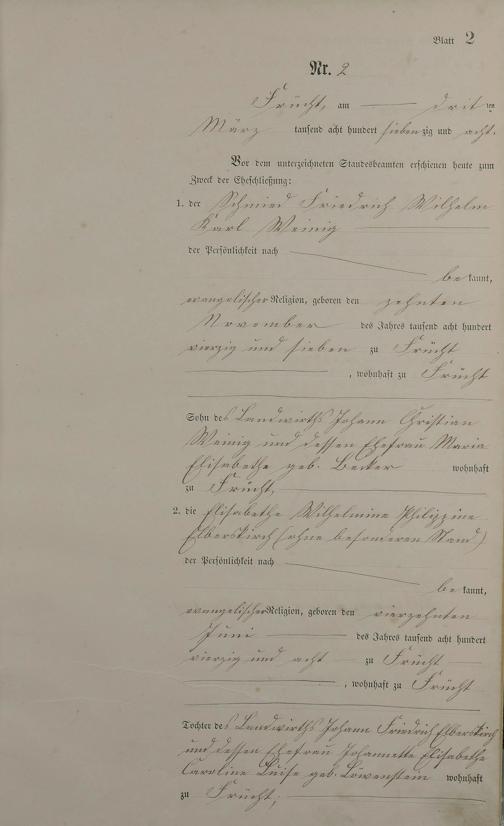 Blatt 2
Nr. 2
Frücht, am dritten
März tausend acht hundert siebenzig und acht.
Vor dem unterzeichneten Standesbeamten erschienen heute zum
Zweck der Eheschließung:
1. der Schmied Friedrich Wilhelm
Karl Weinig
der Persönlichkeit nach
bekannt,
evangelischer Religion, geboren den zehnten
November des Jahres tausend acht hundert
vierzig und sieben zu Frücht
, wohnhaft zu Frücht
Sohn des Landwirths Johann Christian
Weinig und dessen Ehefrau Maria
Elisabethe geb. Becker wohnhaft
zu Frücht,
2. die Elisabethe Wilhelmine Philippine
Elberskirch (ohne besonderen Stand)
der Persönlichkeit nach
bekannt,
evangelischer Religion, geboren den vierzehnten
Juni des Jahres tausend acht hundert
vierzig und acht zu Frücht
, wohnhaft zu Frücht
Tochter des Landwirths Johann Friedrich Elberskirch
und dessen Ehefrau Johannette Elisabethe
Caroline Luise geb. Löwenstein wohnhaft
zu Frücht;